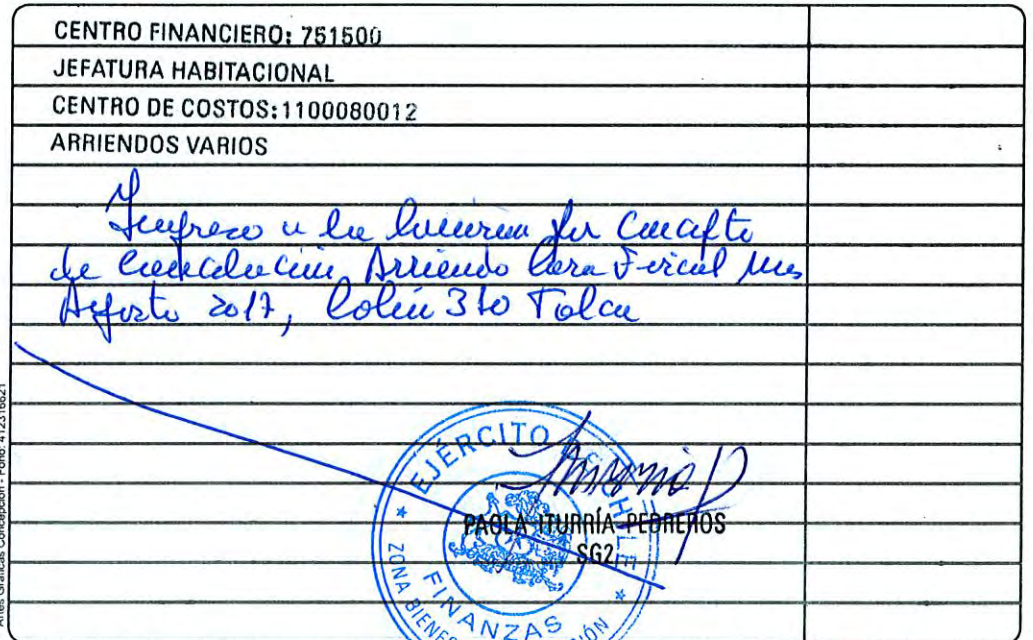 CENTRO FINANCIERO: 751500
JEFATURA HABITACIONAL
CENTRO DE COSTOS:1100080012
ARRIENDOS VARIOS
Ingreso a la
de Arriendo Casa Fiscal mes
Agosto 2017, Colin Talca
EJÉRCITO CHILE
PAOLA ITURRÍA PEDREROS
SG2
ZONA
FINANZAS
Artes Gráficas Concepción - Fono: 412316621